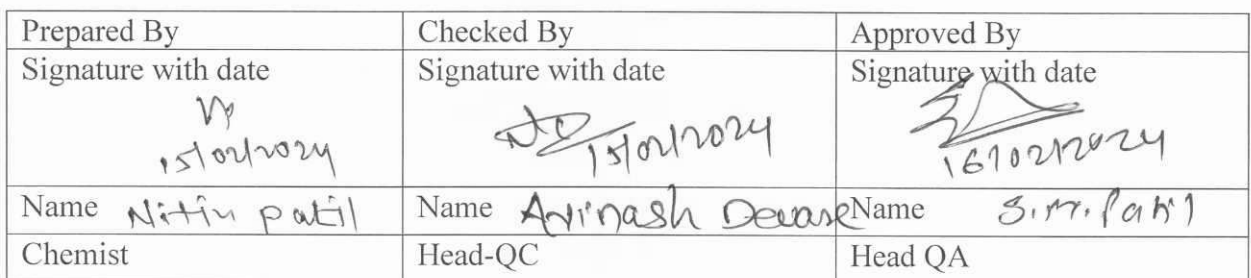 Prepared By Checked By Approved By
Signature with date Signature with date Signature with date
15/02/2024 15/02/2024 16/02/2024
Name Nitin patil Name Avinash Deware Name S.M. Patil
Chemist Head-QC Head QA